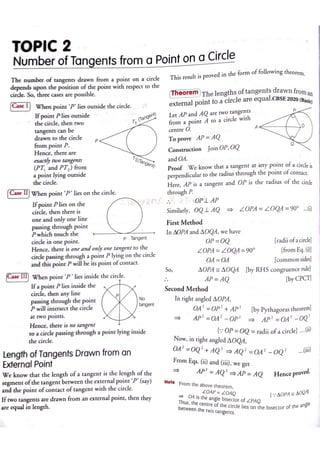 TOPIC 2
Number of Tangents from a Point on a Circle
The number of tangents drawn from a point on a circle
depends upon the position of the point with respect to the
circle. So, three cases are possible.
Case I When point 'P' lies outside the circle.
If point P lies outside
the circle, then two
tangents can be
drawn to the circle
from point P.
Hence, there are
exactly two tangents
(PT₁ and PT₂) from
a point lying outside
the circle.
T₁ (Tangent)
P
T₂ (Tangent)
Case II When point 'P' lies on the circle.
If point P lies on the
circle, then there is
one and only line
passing through point
P which touch the
circle in one point.
P Tangent
Hence, there is one and only one tangent to the
circle passing through a point P lying on the circle
and this point P will be its point of contact.
Case III When point 'P' lies inside the circle.
If a point P lies inside the
circle, then any line
passing through the point
P will intersect the circle
at two points.
P
No
tangent
Hence, there is no tangent
to a circle passing through a point lying inside
the circle.
Length of Tangents Drawn from an
External Point
We know that the length of a tangent is the length of the
segment of the tangent between the external point 'P' (say)
and the point of contact of tangent with the circle.
If two tangents are drawn from an external point, then they
are equal in length.
This result is proved in the form of following theorem.
Theorem The lengths of tangents drawn from an
external point to a circle are equal. CBSE 2020 (Basic)
Let AP and AQ are two tangents
from a point A to a circle with
centre O.
To prove AP = AQ
Construction Join OP, OQ
and OA.
P
A
O
Q
Proof We know that a tangent at any point of a circle is
perpendicular to the radius through the point of contact.
Here, AP is a tangent and OP is the radius of the circle
through P.
∴ OP ⊥ AP
Similarly, OQ ⊥ AQ ⇒ ∠OPA = ∠OQA = 90° ...(i)
First Method
In ΔOPA and ΔOQA, we have
OP = OQ [radii of a circle]
∠OPA = ∠OQA = 90° [from Eq. (i)]
OA = OA [common sides]
So, ΔOPA ≅ ΔOQA [by RHS congruence rule]
∴ AP = AQ [by CPCT]
Second Method
In right angled ΔOPA,
OA² = OP² + AP² [by Pythagoras theorem]
⇒ AP² = OA² − OP² ⇒ AP² = OA² − OQ²
(∵ OP = OQ = radii of a circle) ...(ii)
Now, in right angled ΔOQA,
OA² = OQ² + AQ² ⇒ AQ² = OA² − OQ² ...(iii)
From Eqs. (ii) and (iii), we get
⇒ AP² = AQ² ⇒ AP = AQ Hence proved.
Note From the above theorem,
∠OAP = ∠OAQ [∵ ΔOPA ≅ ΔOQA]
⇒ OA is the angle bisector of ∠PAQ
Thus, the centre of the circle lies on the bisector of the angle
between the two tangents.